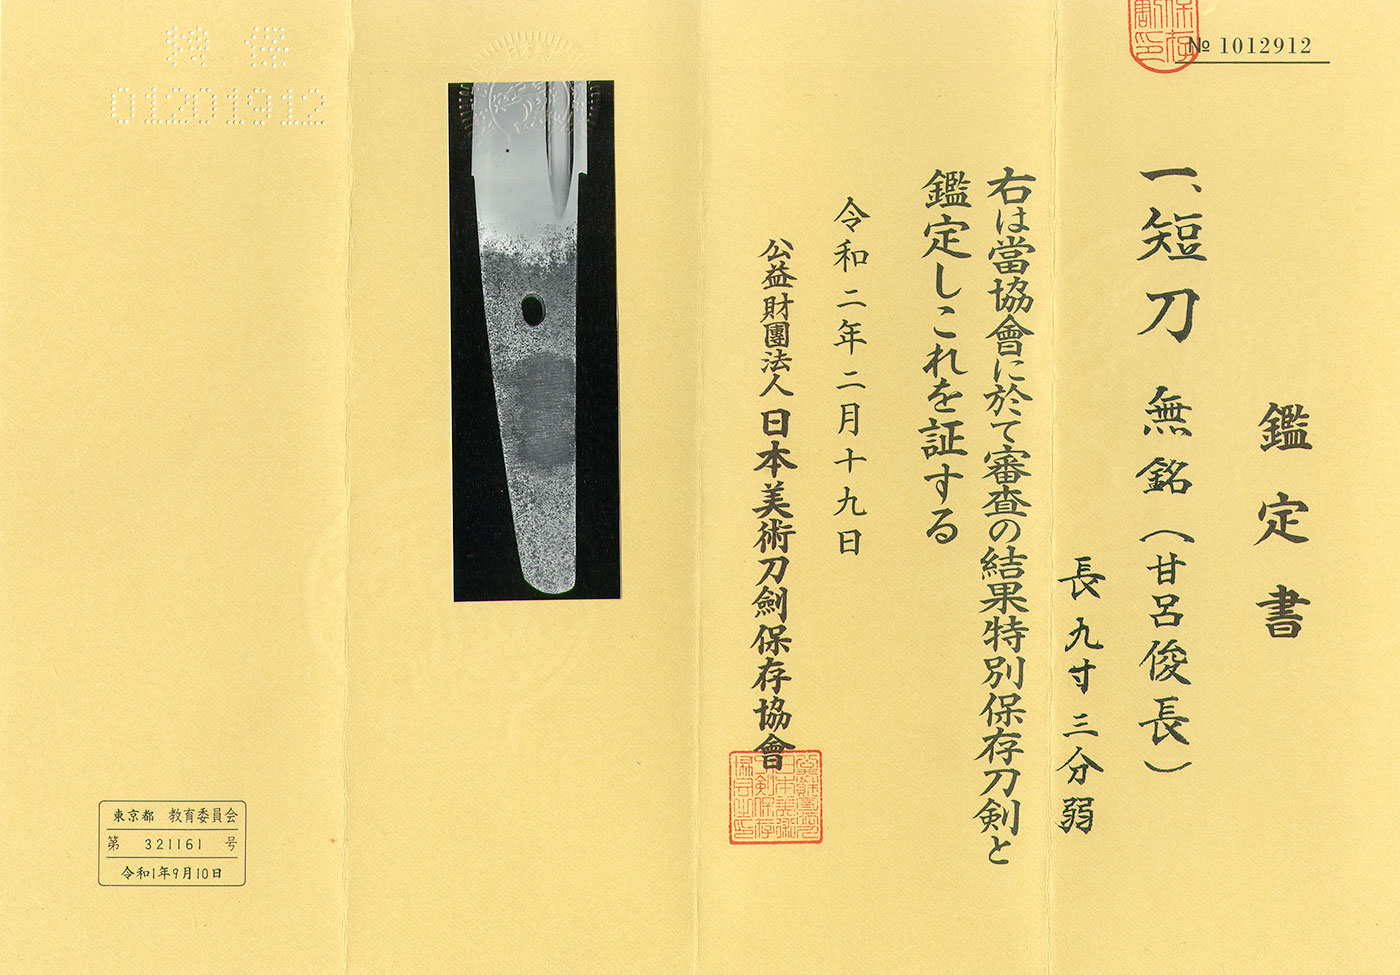 № 1012912
鑑定書
一、短刀 無銘（甘呂俊長）
長九寸三分弱
右は當協會に於て審査の結果特別保存刀剣と
鑑定しこれを証する
令和二年二月十九日
公益財團法人 日本美術刀劍保存協會
特保
01201912
東京都 教育委員会
第 321161 号
令和1年9月10日